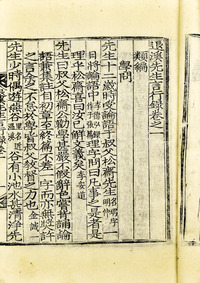 退溪先生言行錄卷之一
類編
學問
先生十二歲時受論語于叔父松齋先生
理字問曰凡事之是者是
理乎松齋喜曰汝已解文義矣 李安道
先生曰叔父松齋公勸學甚嚴不假辭色嘗背誦論
語兼集註自初章至終篇不差一字而亦無
之言余之不怠於學皆叔父教督之力也 金誠一
先生少時偶遊燕谷 谷有小池水甚清淨先